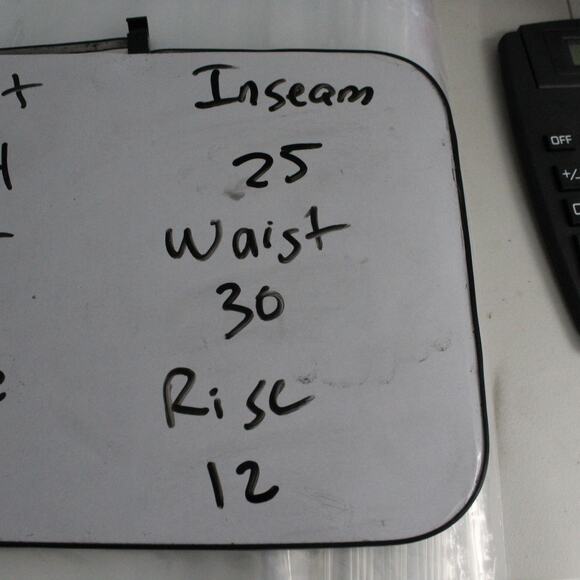 Inseam
25
Waist
30
Rise
12
OFF
+/-